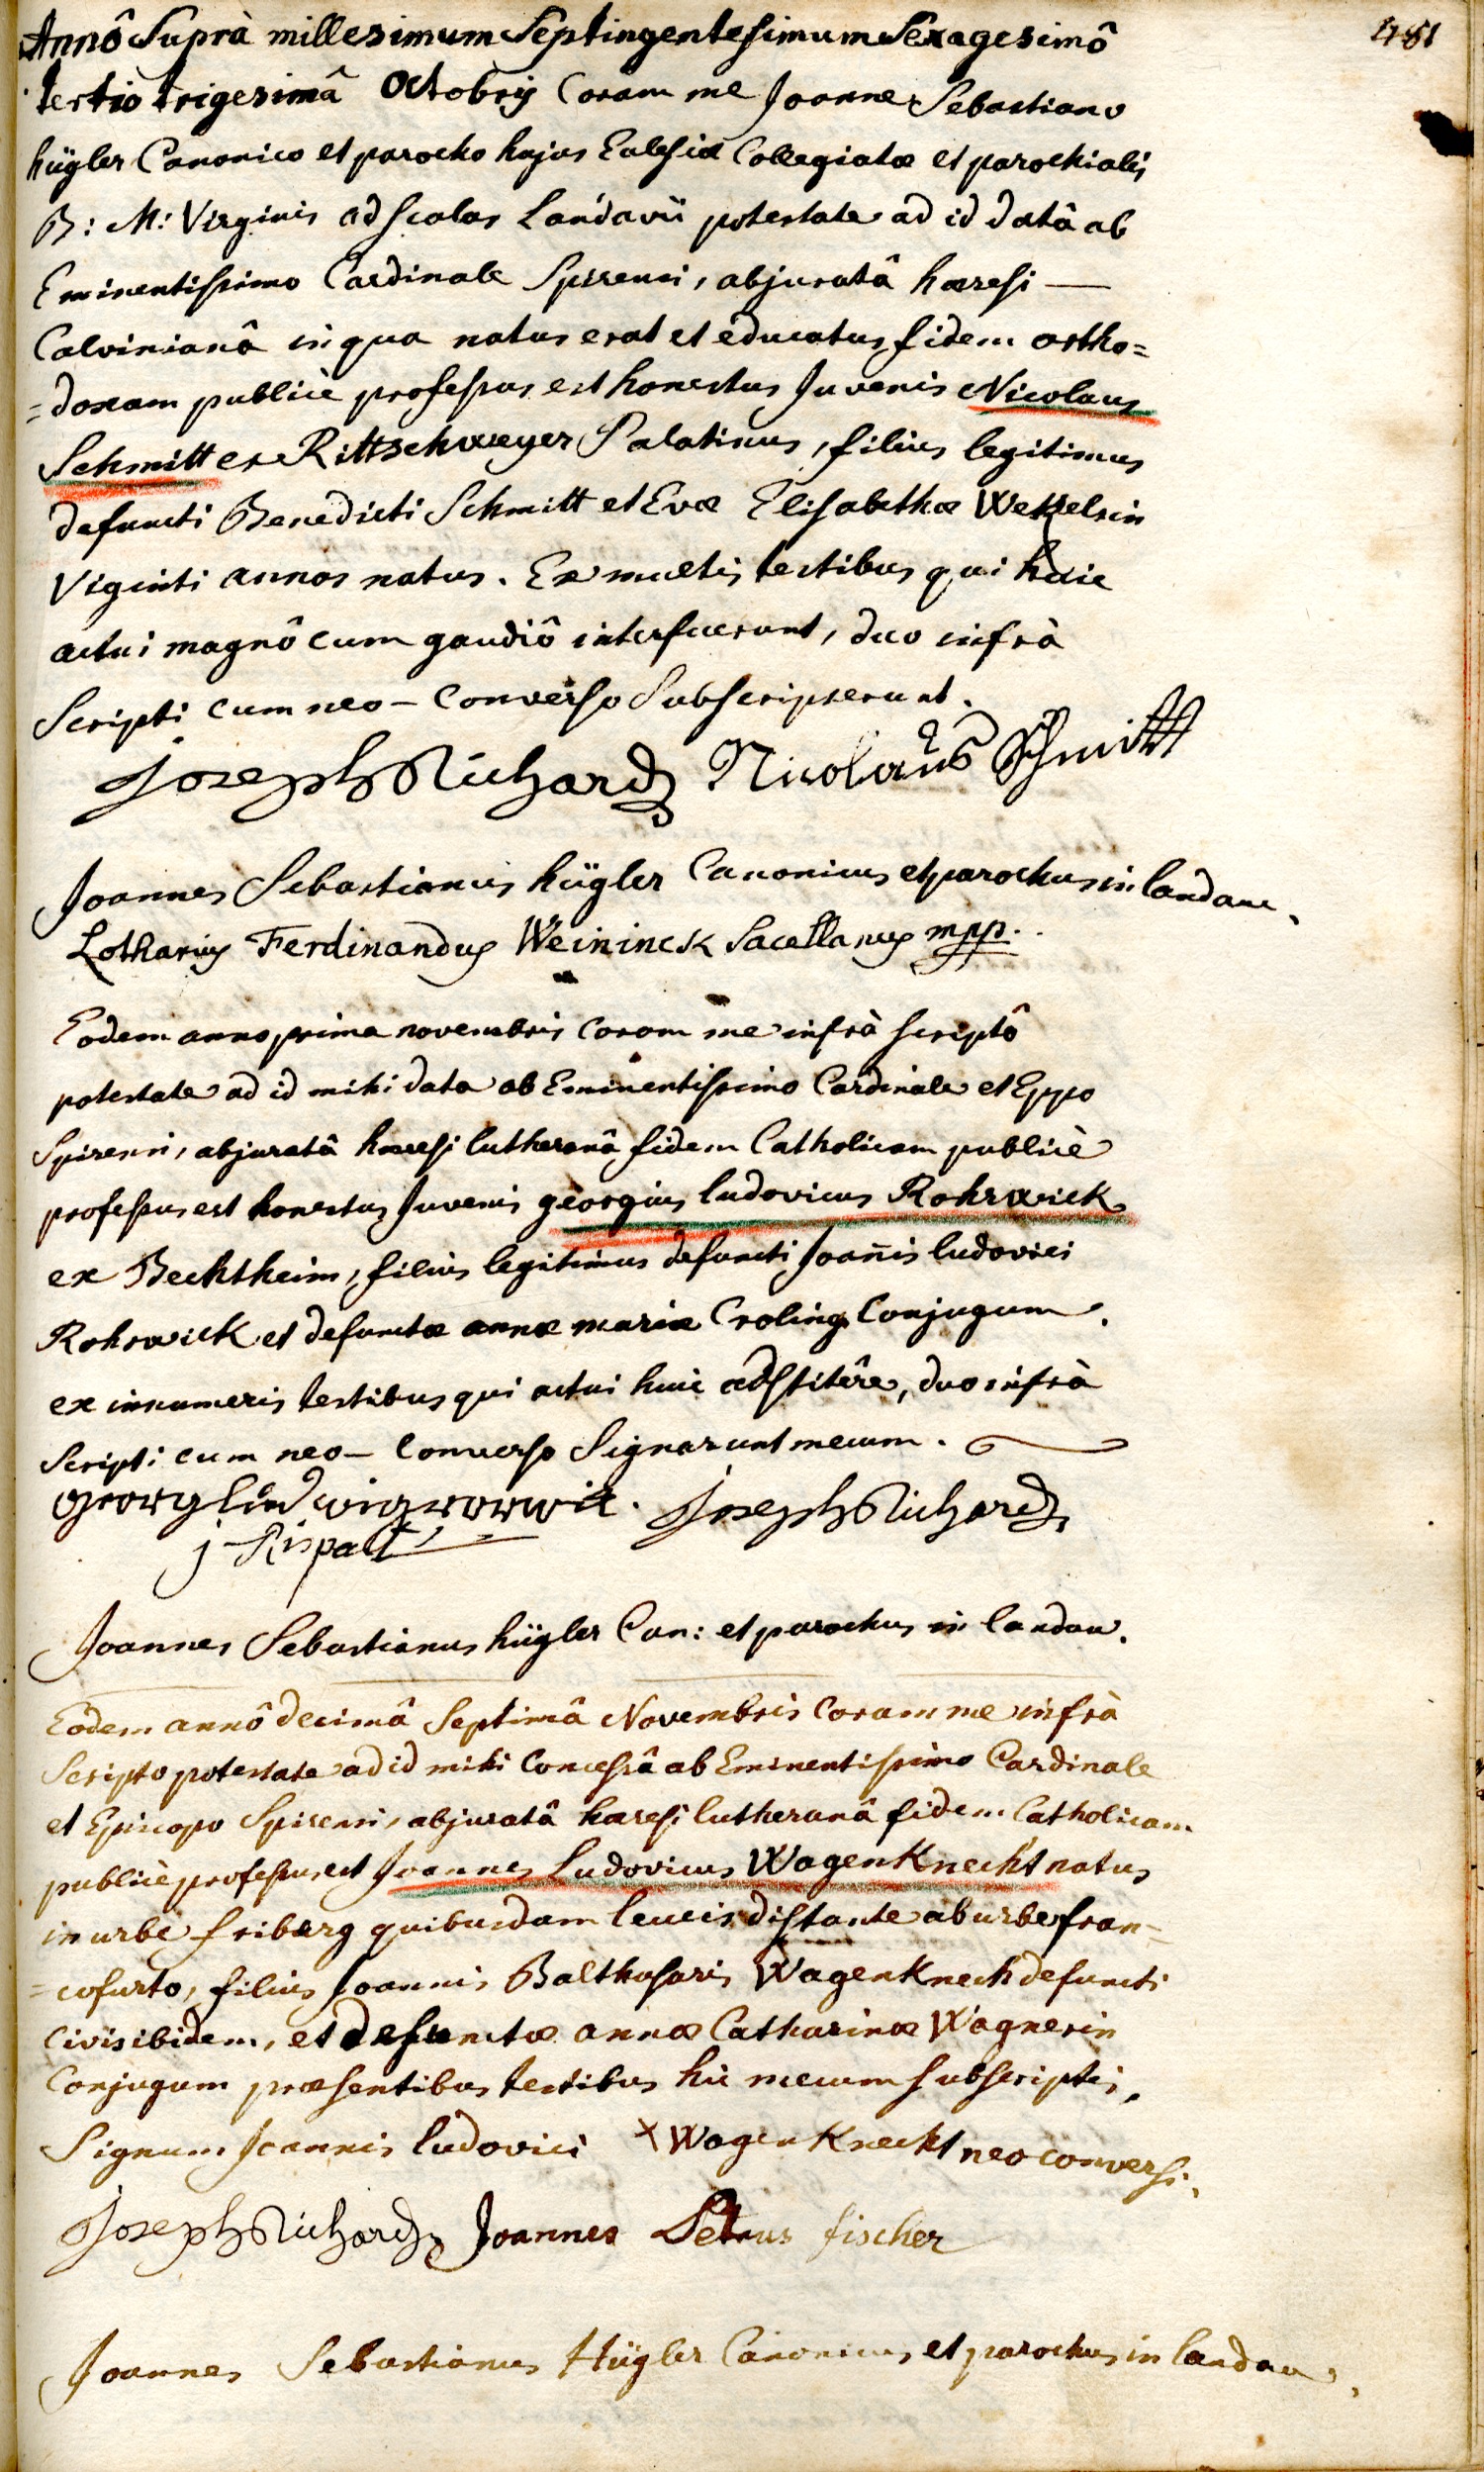 481
Annô Suprà millesimum Septingentesimum Sexagesimô
tertio trigesimâ Octobris Coram me Joanne Sebastiano
hügler Canonico et parocho hujus Ecclesiæ Collegiatæ et parochialis
B: M: Virginis ad Scalas Landavii potestate ad id datâ ab
Eminentissimo Cardinale Spirensi, abjuratâ hæresi —
Calvinianâ in qua natus erat et educatus, fidem ortho=
=doxam publicè professus est honestus Juvenis Nicolaus
Schmitt ex Rittschweyer Palatinus, filius legitimus
defuncti Benedicti Schmitt et Evæ Elisabethæ Wetzelsin
Viginti annos natus. Ex multis testibus qui huic
actui magnô cum gaudiô interfuerunt, duo infrà
Scripti cum neo - Converso Subscripserunt.
Joseph Richard Nicolaus Schmitt
Joannes Sebastianus hügler Canonicus et parochus in landau.
Lotharius Ferdinandus Weininck Sacellanus mpp.
Eodem anno prima novembris Coram me infrà scriptô
potestate ad id mihi data ab Eminentissimo Cardinale et Eppo
Spirensi, abjuratâ hæresi lutheranâ, fidem Catholicam publicè
professus est honestus Juvenis georgius ludovicus Rohrwick
ex Bechtheim, filius legitimus defuncti Joañis ludovici
Rohrwick et defunctæ annæ mariæ Croling Conjugum.
ex innumeris testibus qui actui huic adstitêre, duo infrà
Scripti cum neo - Converso Signarunt mecum.
georg ludwig rorwick. Joseph Richard
j Rispalt
Joannes Sebastianus hügler Can: et parochus in landau.
Eodem annô decimâ Septimâ Novembris Coram me infrà
Scripto potestate ad id mihi Concessâ ab Eminentissimo Cardinale
et Episcopo Spirensi, abjuratâ hæresi lutheranâ fidem Catholicam
publicè professus est Joannes Ludovicus WagenKnecht natus
in urbe friberg quibusdam leucis distante ab urbe fran-
=cofurto, filius Joannis Balthasaris WagenKnech defuncti
Civis ibidem, et defunctæ annæ Catharinæ Wagnerin
Conjugum præsentibus testibus hic mecum subscriptis,
Signum Joannis ludovici + WagenKnecht neo conversi.
Joseph Richard Joannes Petrus fischer
Joannes Sebastianus Hügler Canonicus et parochus in landau.